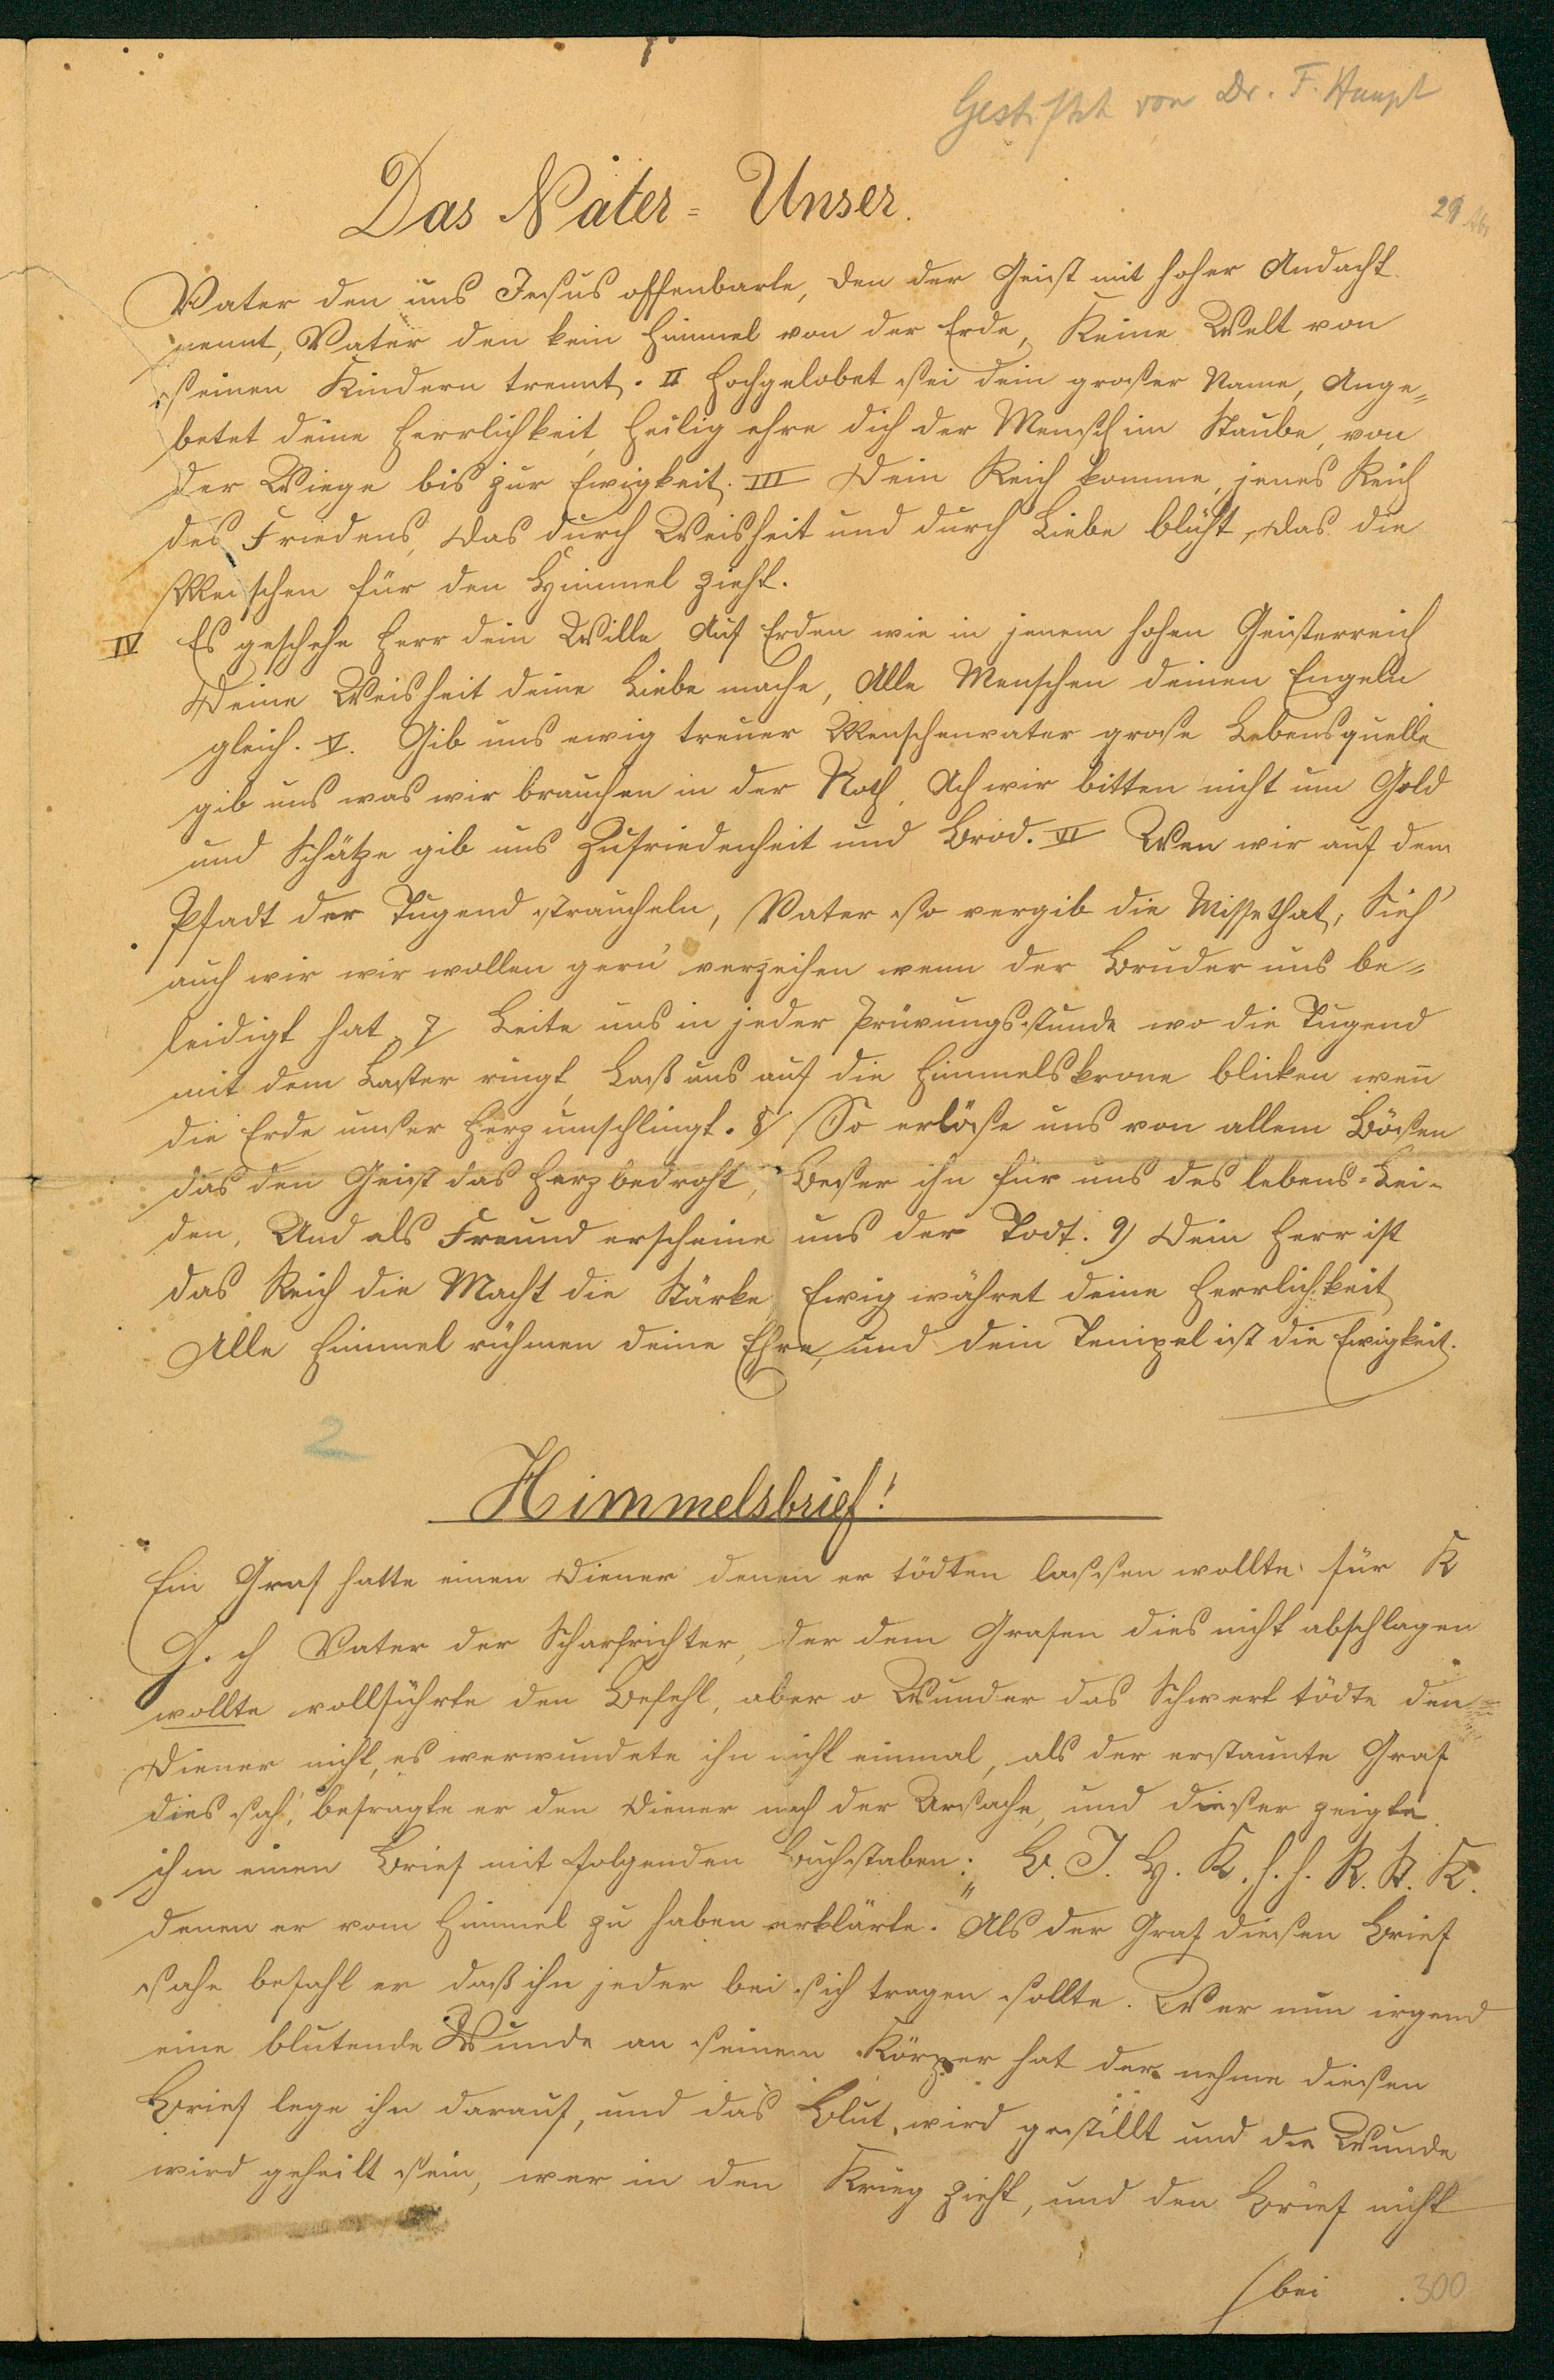 Gestiftet von Dr. F. Haupt
Das Vater= Unser.
29
Vater den uns Jesus offenbarte, den der Geist mit hoher Andacht
nennt, Vater den kein Himmel von der Erde, Keine Welt von
seinen Kindern trennt. II Hochgelobet sei dein großer Name, Ange=
betet deine Herrlichkeit, Heilig ehre dich der Mensch im Staube, von
der Wiege bis zur Ewigkeit. III Dein Reich komme, jenes Reich
des Friedens, das durch Weisheit und durch Liebe blüht, das die
Menschen für den Himmel zieht.
IV Es geschehe Herr dein Wille Auf Erden wie in jenem hohen Geisterreich
Deine Weisheit deine Liebe mache, Alle Menschen deinen Engeln
gleich. V. Gib uns ewig treuer Menschenvater große Lebensquelle
gib uns was wir brauchen in der Noth, Ach wir bitten nicht um Gold
und Schätze gib uns Zufriedenheit und Brod. VI Wen wir auf dem
Pfadt der Tugend straucheln, Vater so vergib die Missethat, Sieh'
auch wir wir wollen gern' verzeihen wenn der Bruder uns be=
leidigt hat, 7 Leite uns in jeder Prüvungsstunde wo die Tugend
mit dem Laster ringt, Laß uns auf die Himmelskrone blicken weñ
die Erde unser Herz umschlingt. 8) So erlöse uns von allem Bösen
das den Geist das Herz bedroht, Beser ihn für uns des lebens=Lei-
den, Und als Freund erscheine uns der Todt. 9) Dein Herr ist
das Reich die Macht die Stärke, Ewig währet deine Herrlichkeit
Alle Himmel rühmen deine Ehre, und dein Tempel ist die Ewigkeit.
2
Himmelsbrief!
Ein Graf hatte einen Diener denen er tödten lassen wollte für K
G. ch Vater der Scharfrichter, der dem Grafen dies nicht abschlagen
wollte vollführte den Befehl, aber o Wunder das Schwert tödte den
Diener nicht, es verwundete ihn nicht einmal, als der erstaunte Graf
dies sah, befragte er den Diener nach der Ursache, und dieser zeigte
ihm einen Brief mit folgenden Buchstaben: B. J. H. K. h. h. R. St. K.
denen er vom Himmel zu haben erklärte." Als der Graf diesen Brief
sahe befahl er daß ihn jeder bei sich tragen sollte. Wer nun irgend
eine blutende Wunde an seinem Körper hat der nehme diesen
Brief lege ihn darauf, und das Blut, wird gestillt und die Wunde
wird geheilt sein, wer in den Krieg zieht, und den Brief nicht
bei
300